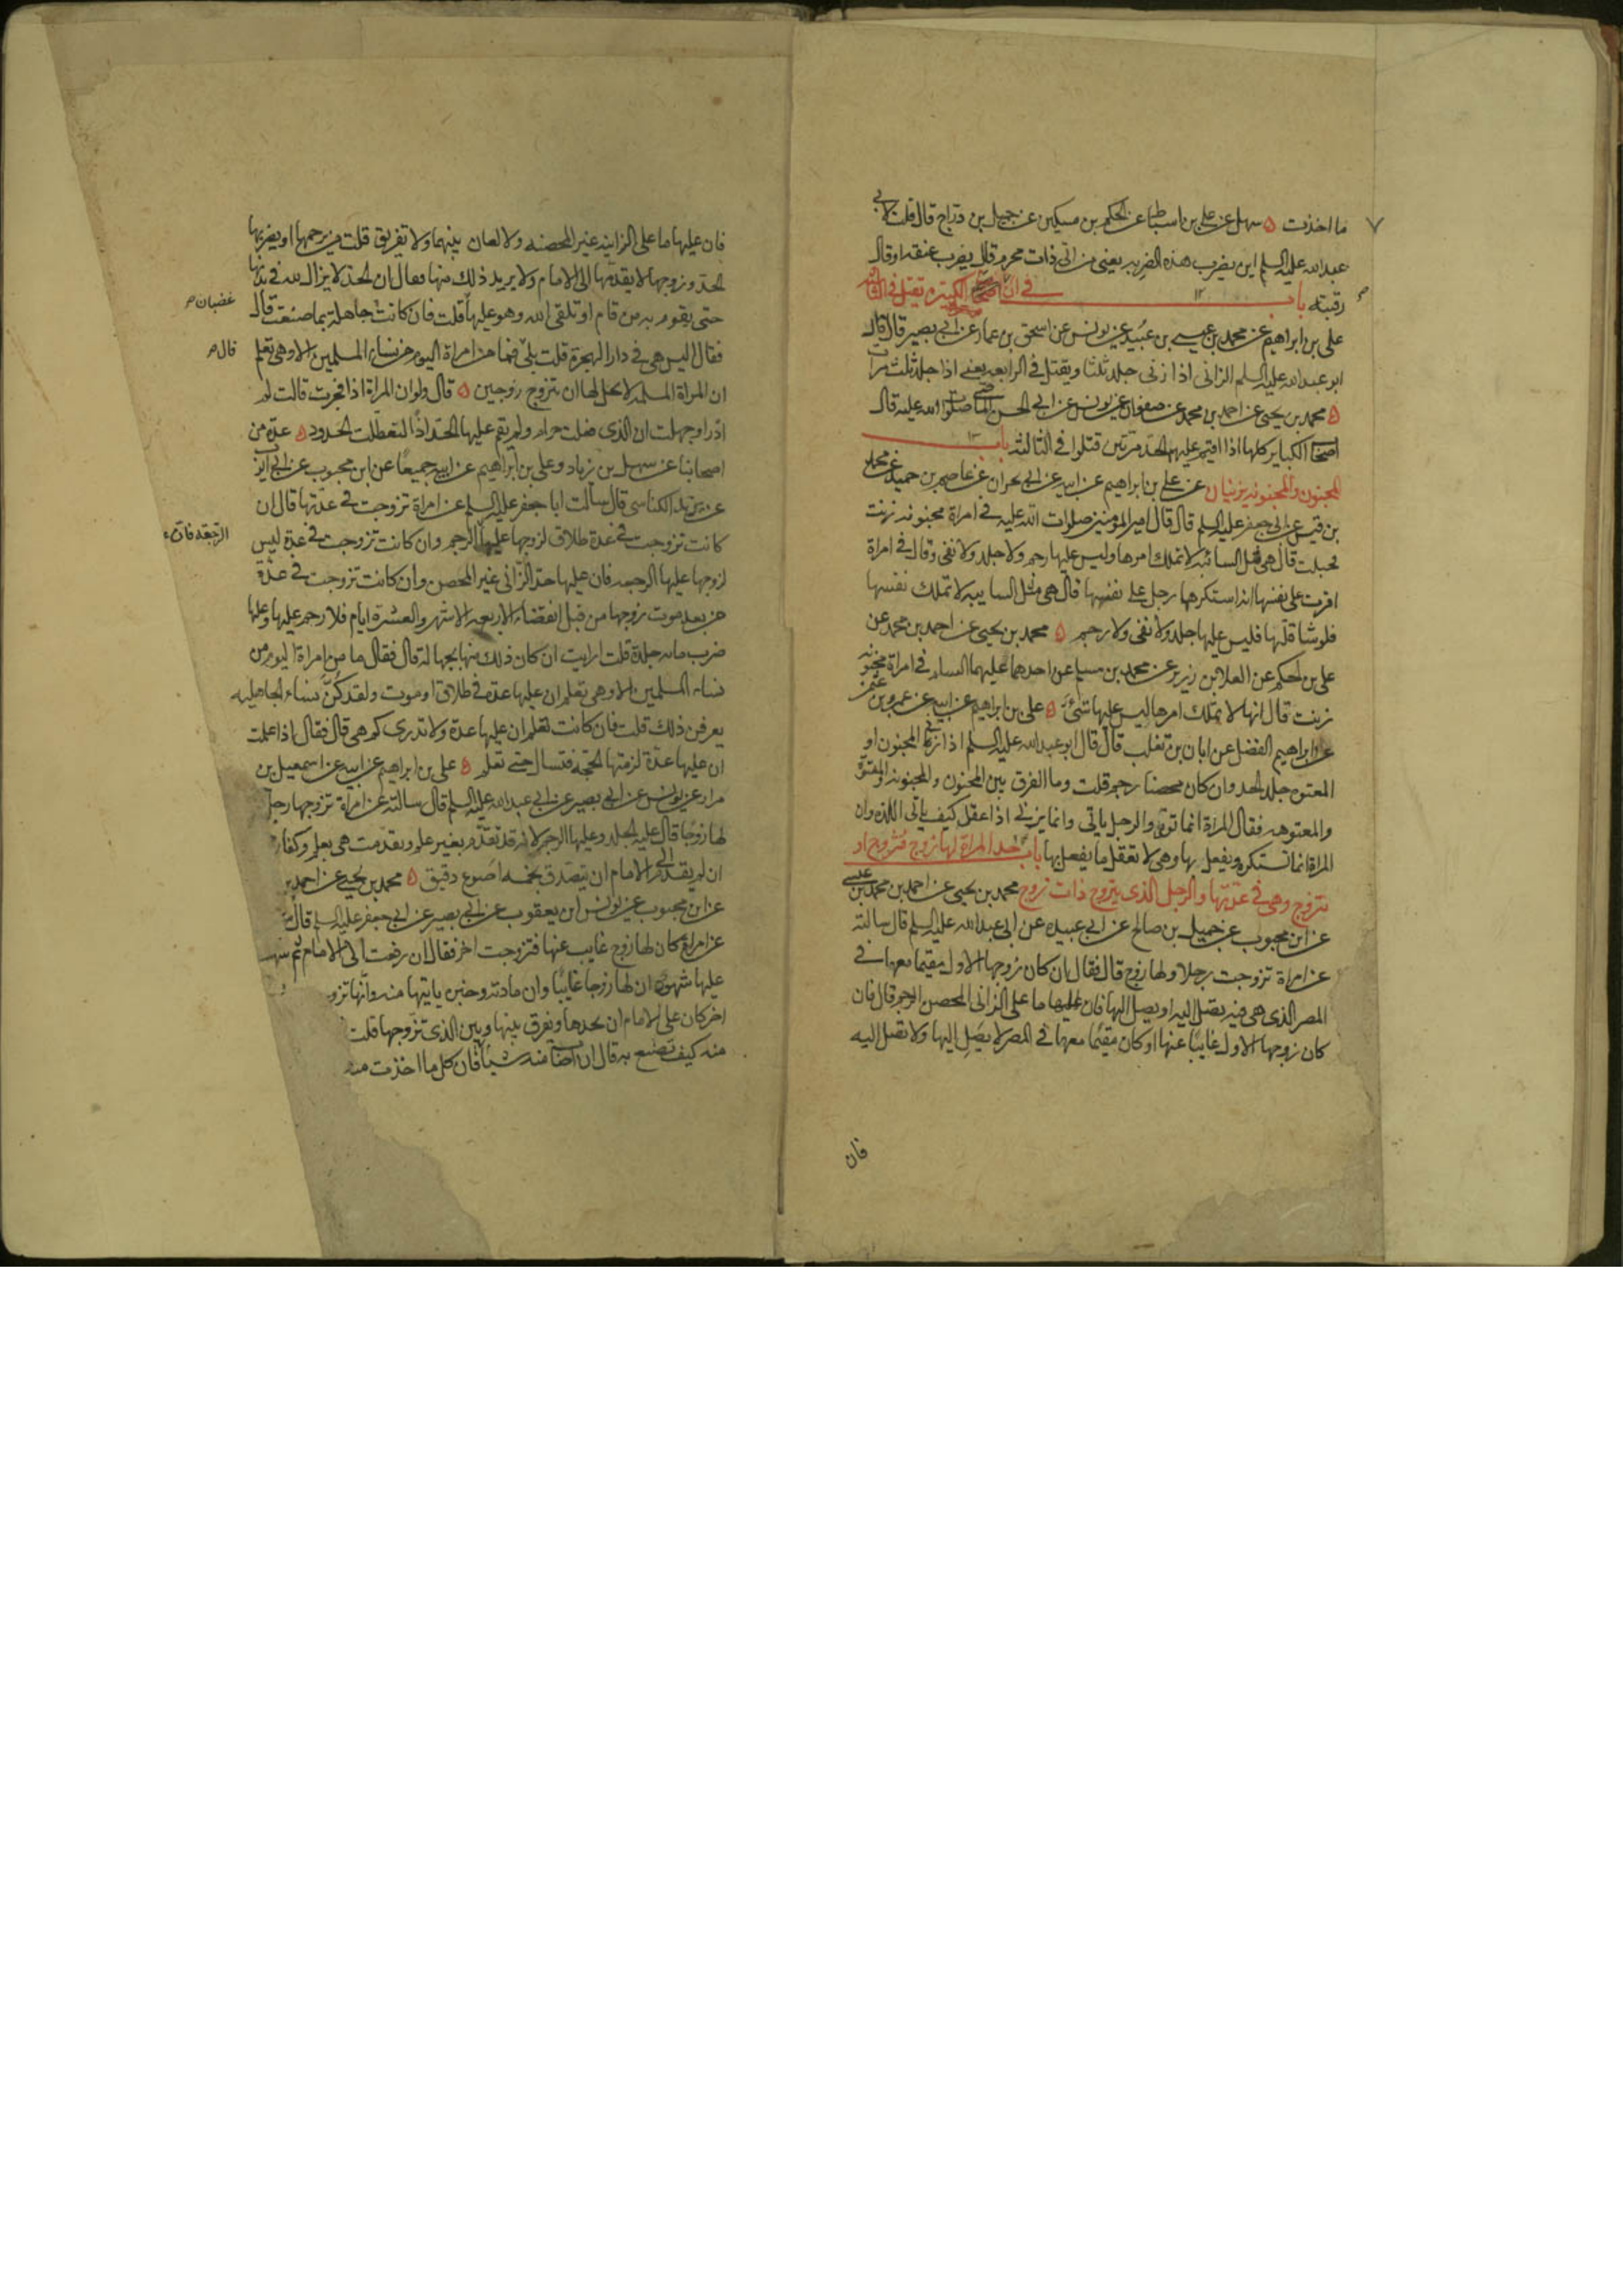 ما اخذت ه سهل عن علي بن اسباط عن الحكم بن مسكين عن جميل بن دراج قال قلت لابي
عبد الله عليه السلم اين يضرب هذه الضربه يعني من اتى ذات محرم قال يضرب عنقه او قال
رقبته باب في ان صاحب الكبيرة يقتل في الثالثه
علي بن ابراهيم عن محمد بن عيسى بن عبيد عن يونس عن اسحق بن عمار عن ابي بصير قال قال
ابو عبد الله عليه السلم الزاني اذا زنى جلد ثلثا ويقتل في الرابعه يعني اذا جلد ثلث مرات
ه محمد بن يحيى عن احمد بن محمد عن صفوان عن يونس عن ابي الحسن الماضي صلوات الله عليه قال
اصحاب الكباير كلها اذا اقيم عليهم الحد مرتين قتلوا في الثالثه باب ١٣
المجنون والمجنونه يزنيان عن علي بن ابراهيم عن ابيه عن ابي نجران عن عاصم بن حميد عن محمد
بن قيس عن ابي جعفر عليه السلم قال قال امير المؤمنين صلوات الله عليه في امراة مجنونه زنت
فحبلت قال هي مثل السائبه لا تملك امرها وليس عليها رجم ولا جلد ولا نفي وقال في امراة
اقرت على نفسها انه استكرهها رجل على نفسها قال هي مثل السايبه لا تملك نفسها
فلو شا قتلها فليس عليها جلد ولا نفي ولا رجم ه محمد بن يحيى عن احمد بن محمد عن
علي بن الحكم عن العلا بن رزين عن محمد بن مسلم عن احدهما عليهما السلم في امراة مجنونه
زنت قال انها لا تملك امرها ليس عليها شئ ه علي بن ابراهيم عن ابيه عن عمرو بن عثمن
عن ابراهيم الفضل عن ابان بن تغلب قال قال ابو عبد الله عليه السلم اذا زنى المجنون او
المعتوه جلد الحد وان كان محصنا رجم قلت وما الفرق بين المجنون والمجنونه والمعتوه
والمعتوهه فقال المراة انما توتى والرجل ياتي وانما يزني اذا عقل كيف ياتي اللذه وان
المراة انما تستكره ويفعل بها وهي لا تعقل ما يفعل بها باب حد المراة لها زوج فتزوج او
تتزوج وهي في عدتها والرجل الذي يتزوج ذات زوج محمد بن يحيى عن احمد بن محمد بن عيسى
عن ابن محبوب عن جميل بن صالح عن ابي عبيده عن ابي عبد الله عليه السلم قال سالته
عن امراة تزوجت رجلا ولها زوج قال فقال ان كان زوجها الاول مقيما معها في
المصر الذي هي فيه يصل اليه او يصل اليها فان عليها ما على الزاني المحصن الرجم قال فان
كان زوجها الاول غايبا عنها او كان مقيما معها في المصر لا يصل اليها ولا تصل اليه
فان
فان عليها ما على الزانيه غير المحصنه ولا لعان بينهما ولا تفريق قلت من يرجمها او يضربها
الحد وزوجها لا يقدمها الى الامام ولا يريد ذلك منها فقال ان الحد لا يزال لله في بدنها
حتى يقوم به من قام او تلقى الله وهو عليها قلت فان كانت جاهلة بما صنعت قال
غضبان
فقال اليس هي في دار الهجرة قلت بلى فما من امراة اليوم من نساء المسلمين الا وهي تعلم
قال
ان المراة المسلمه لا يحل لها ان تتزوج زوجين ه قال ولو ان المراة اذا فجرت قالت لم
ادر او جهلت ان الذي فعلت حرام ولم يقم عليها الحد اذا لتعطلت الحدود ه عدة من
اصحابنا عن سهل بن زياد وعلي بن ابراهيم عن ابيه جميعا عن ابن محبوب عن ابي ايوب
عن يزيد الكناسي قال سالت ابا جعفر عليه السلم عن امراة تزوجت في عدتها قال ان
كانت تزوجت في عدة طلاق لزوجها عليها الرجم وان كانت تزوجت في عدة ليس
الرجعة فان
لزوجها عليها الرجعه فان عليها حد الزاني غير المحصن وان كانت تزوجت في عدة
من بعد موت زوجها من قبل انقضاء الاربعه الاشهر والعشرة ايام فلا رجم عليها وعليها
ضرب مايه جلدة قلت ارايت ان كان ذلك منها بجهالة قال فقال ما من امراة اليوم من
نساء المسلمين الا وهي تعلم ان عليها عدة في طلاق او موت ولقد كن نساء الجاهليه
يعرفن ذلك قلت فان كانت تعلم ان عليها عدة ولا تدري كم هي قال فقال اذا علمت
ان عليها عدة لزمتها الحجة فتسال حتى تعلم ه علي بن ابراهيم عن ابيه عن اسمعيل بن
مرار عن يونس عن ابي بصير عن ابي عبد الله عليه السلم قال سالته عن امراة تزوجها رجل
لها زوجا قال عليه الجلد وعليها الرجم لانه قد تقدم بغير علم وتقدمت هي بعلم وكفارته
ان لم يقدم الى الامام ان يتصدق بخمسه اصوع دقيق ه محمد بن يحيى عن احمد بن
عن ابن محبوب عن يونس ابن يعقوب عن ابي بصير عن ابي جعفر عليه السلم قال
عن امراة كان لها زوج غايب عنها فتزوجت اخر فقال ان رفعت الى الامام ثم شهد
عليها شهود ان لها زوجا غايبا وان مادته وخبره ياتيها منه وانها تزو
اخر كان على الامام ان يحدها ويفرق بينها وبين الذي تزوجها قلت
منه كيف تصنع به قال ان اصاب منه شيئا فان كل ما اخذت منه